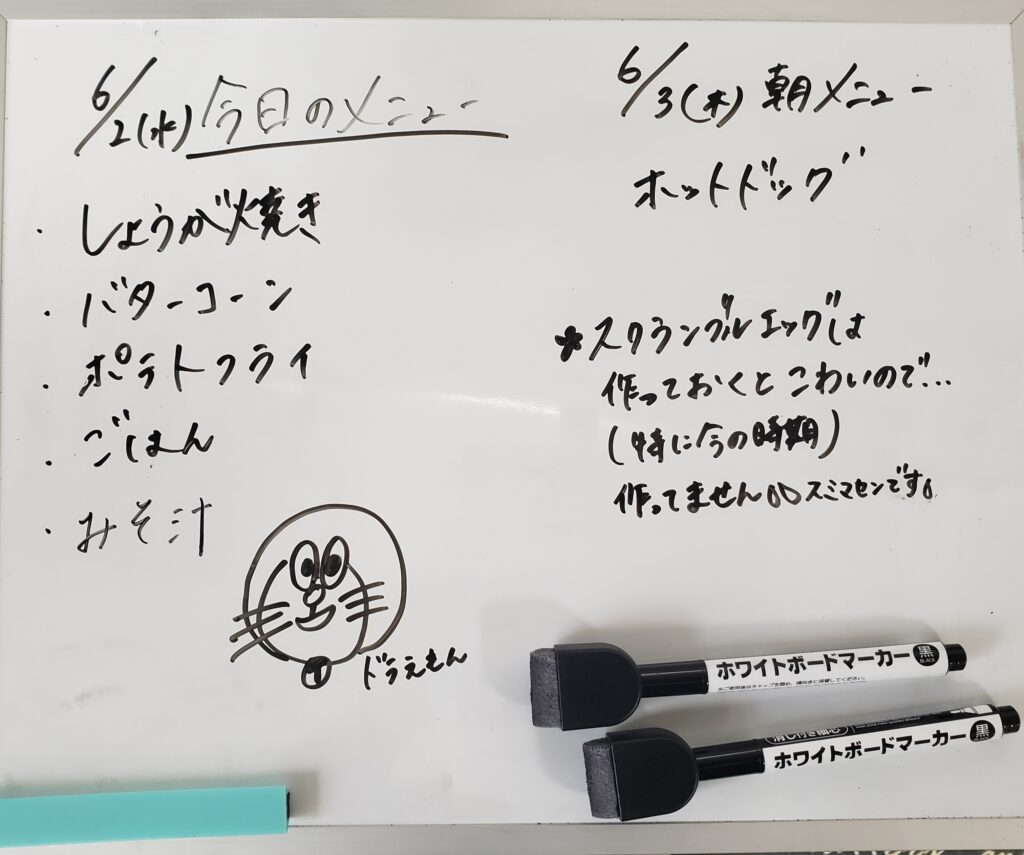 6/2(水) 今日のメニュー
・しょうが焼き
・バターコーン
・ポテトフライ
・ごはん
・みそ汁
ドラえもん
6/3(木) 朝メニュー
ホットドッグ
*スクランブルエッグは
作っておくとこわいので…
(特に今の時期)
作ってません。スミマセンです。
ホワイトボードマーカー 黒
BLACK
消し付き細芯
ホワイトボードマーカー 黒